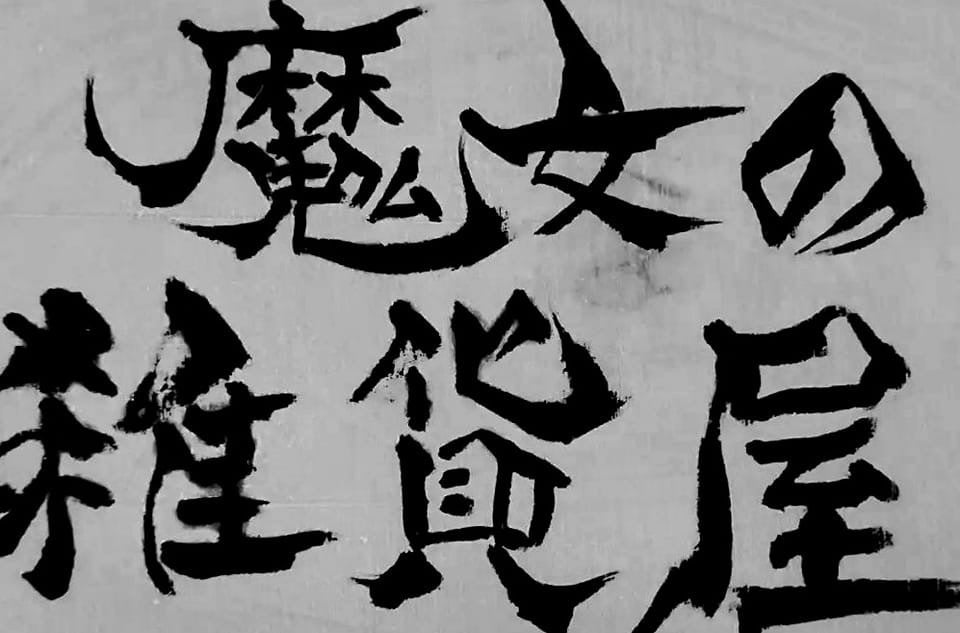 魔女の
雑貨屋